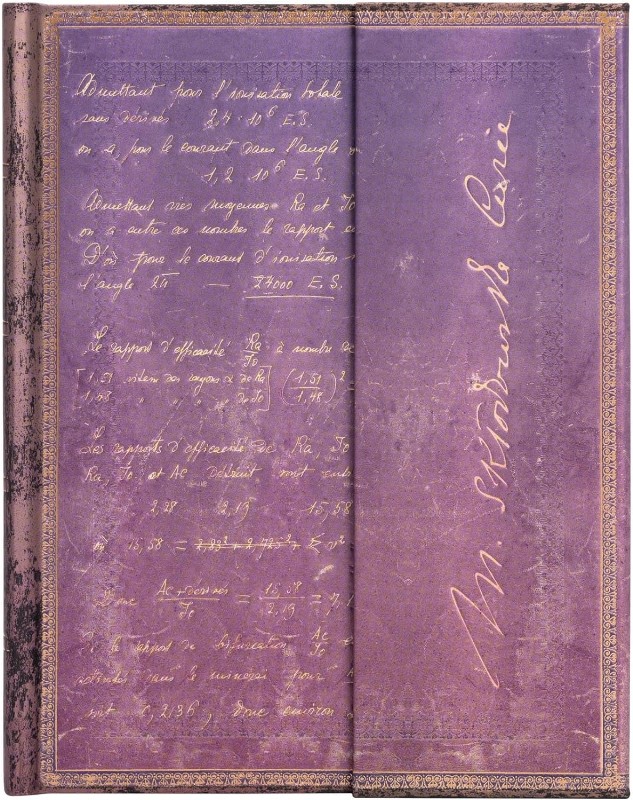 Admettant pour l'ionisation totale
sans dérivés 2,4 · 10⁶ E.S.
on a, pour le courant dans l'angle
1,2 10⁶ E.S.
Admettant mes moyennes Ra et Io
on a entre ces nombres le rapport
D'où pour le courant d'ionisation
l'angle 2π — 27000 E.S.
Le rapport d'efficacité Ra/Io à nombre
[1,51 vitesse des rayons α de Ra] (1,51/1,48)²
1,48 " " " " de Io
Les rapports d'efficacité de Ra, Io
Ra, Io et Ac sont
2,28 2,19 15,58
15,58 = 2,83² + 2,72² + Σ v²
Donc Ac+dérivés/Io = 15,58/2,19 = 7,1
le rapport de bifurcation Ac/Io
dans le minerai pour
soit 0,2136, donc environ
M. Skłodowska Curie